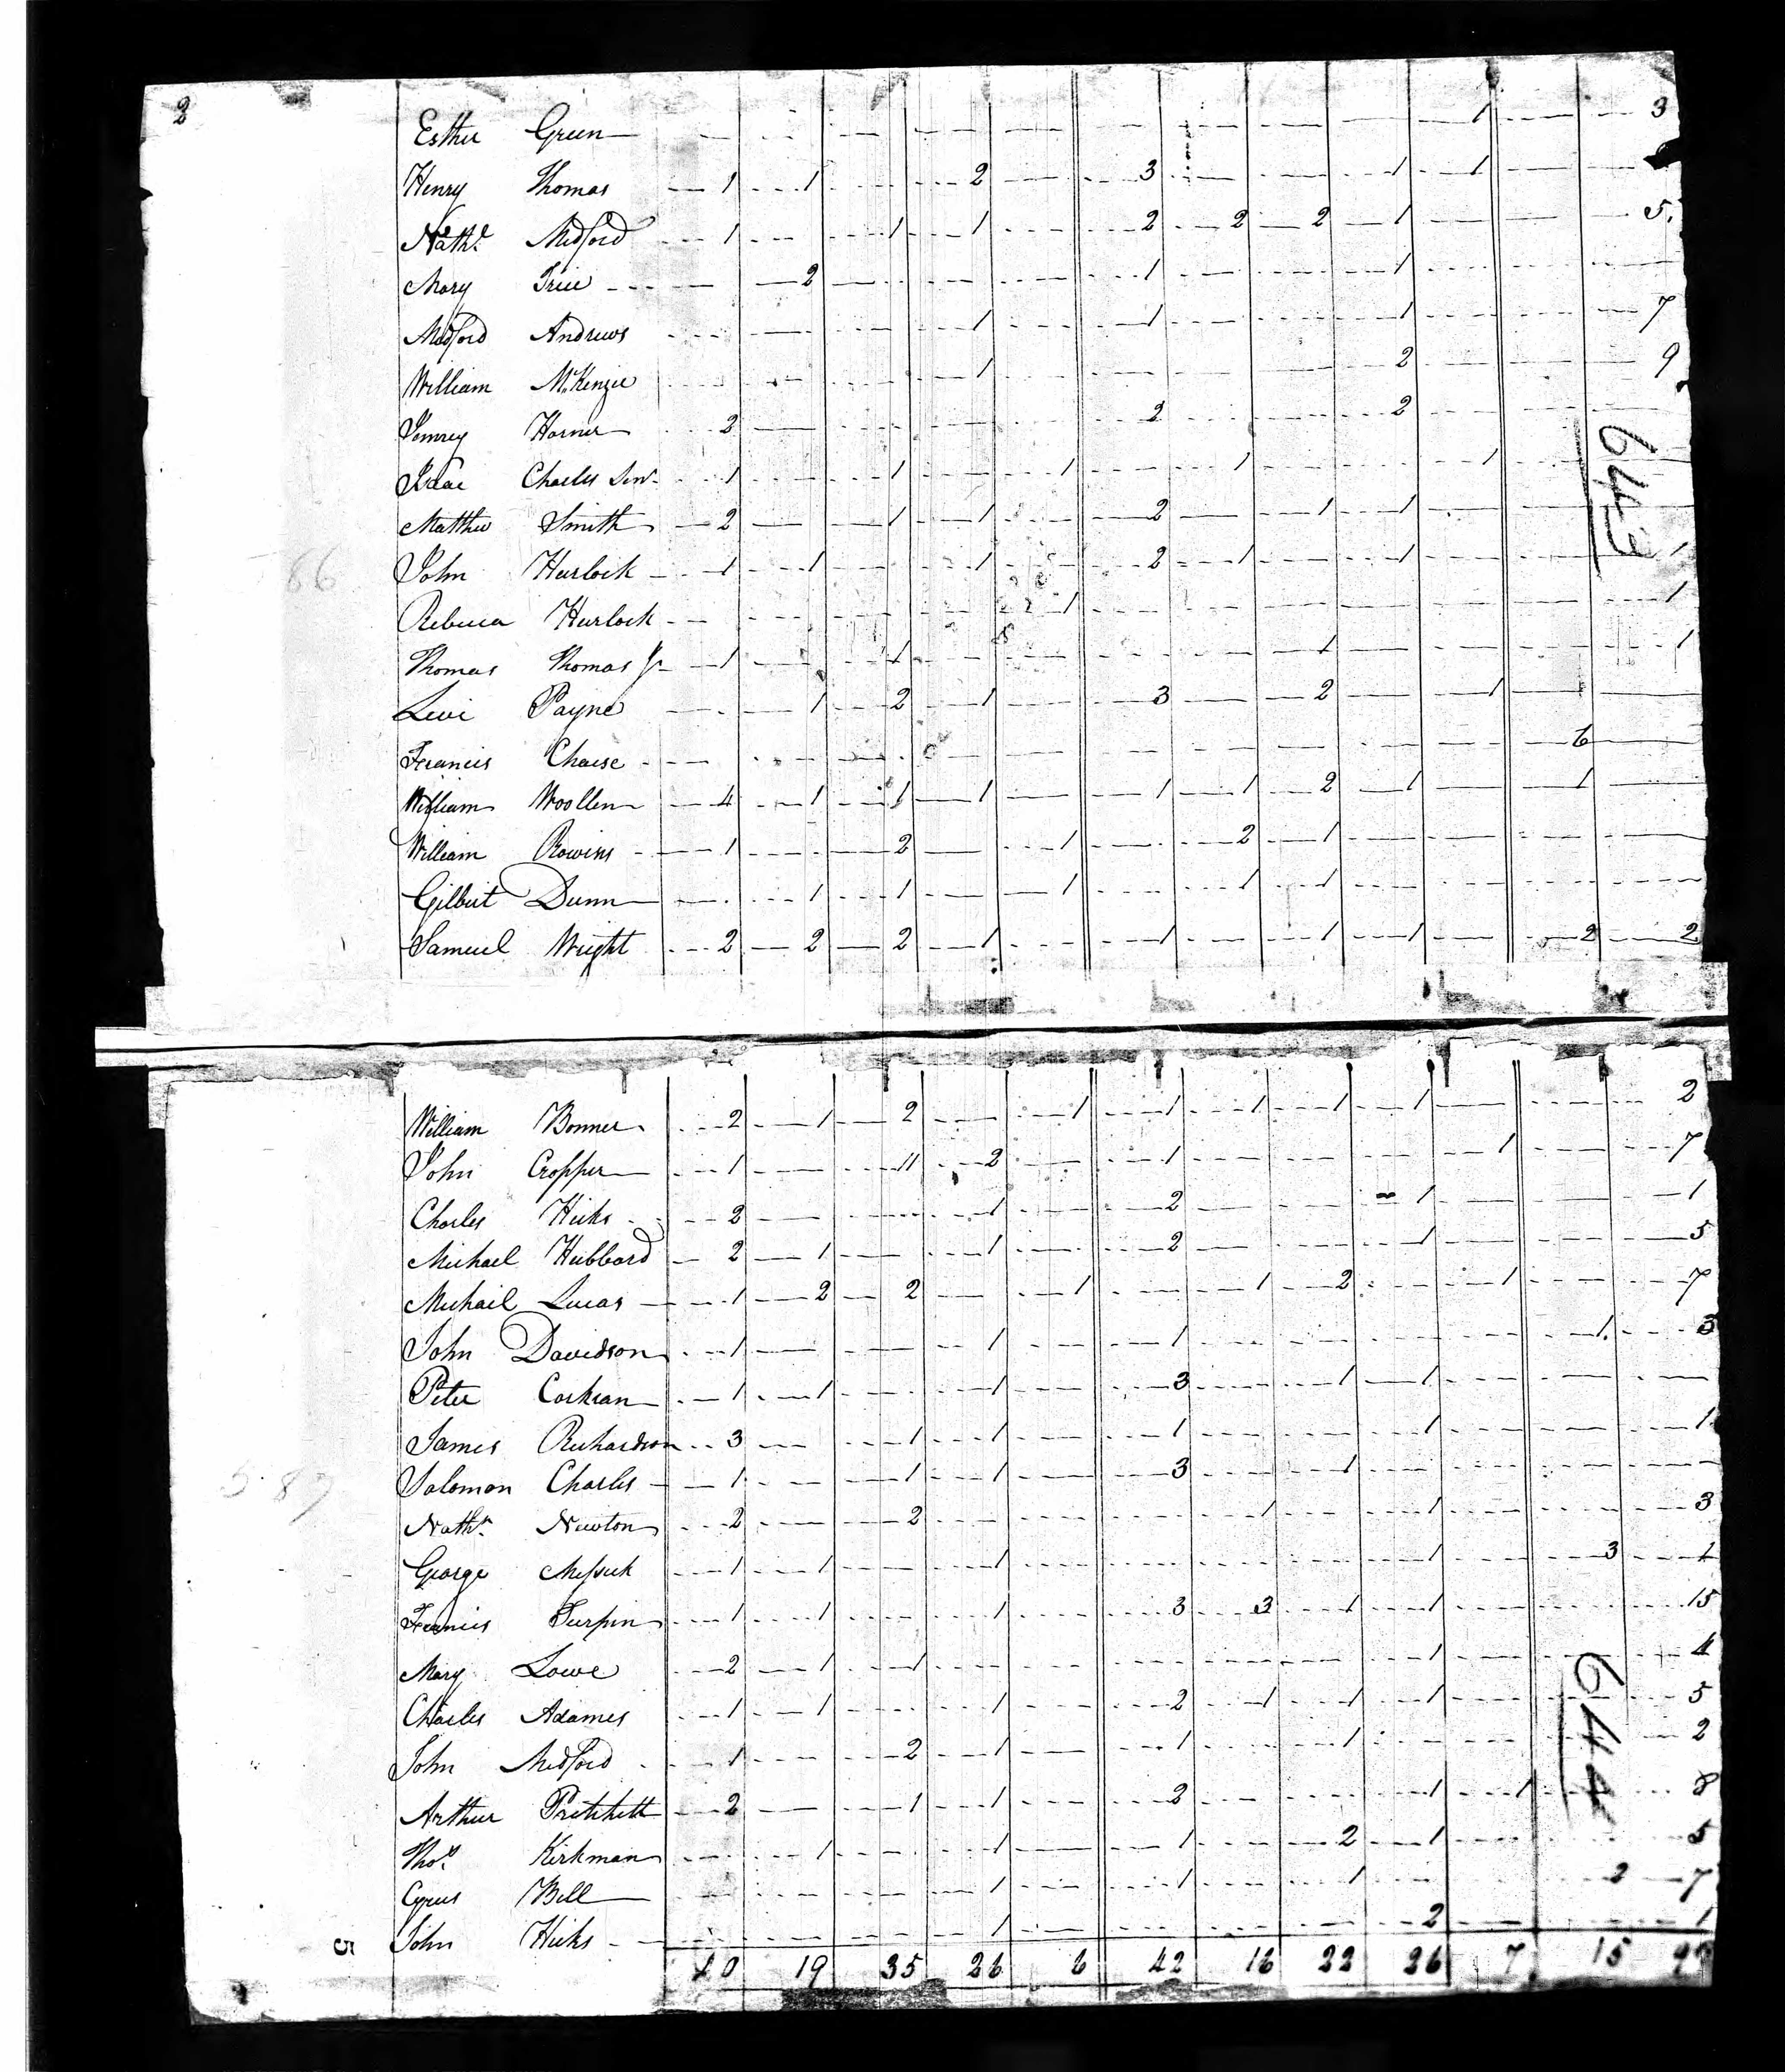 2
Esther Green — — — — — — — — — 1 — 3
Henry Thomas 1 1 — 2 — 3 — — 1 1 —
Nathl Medford 1 — 1 1 — 2 2 2 1 — — 5
Mary Price — 2 — — — 1 — — 1 — — —
Medford Andrews — — — 1 — 1 — — 1 — — 7
William McKenzie — — — 1 — — — — 2 — — 9
643
Harner 2 — — — — 2 — — 2 — — —
Isaac Charles Senr 1 — 1 — 1 — 1 — — 1 — —
Matthew Smith 2 — 1 1 — 2 — 1 1 — — —
66 John Hurlock 1 1 — 1 — 2 1 — 1 — — 1
Rebecca Hurlock — — — — 1 — — — — — — 1
Thomas Thomas Jr 1 — 1 — — — — 1 — — — 1
Levi Payne — 1 2 1 — 3 — 2 — 1 — —
Francis Chaise — — — — — — — — — — 6 —
William Woollen 4 1 1 1 — 1 1 2 1 — 1 —
William Rowins 1 — 2 — 1 — 2 1 — — — —
Gilbert Dunn — 1 1 — 1 — 1 1 — — — —
Samuel Wright 2 2 2 1 — 1 — 1 1 — 2 2
William Bonner 2 1 2 — 1 1 1 1 1 — — 2
John Cropper 1 — 11 2 — 1 — — — 1 — 7
Charles Hicks 2 — — 1 — 2 — — 1 — — 1
Michael Hubbard 2 1 — 1 — 2 — — 1 — — 5
Michael Lucas 1 2 2 — 1 — 1 2 — 1 — 7
John Davidson 1 — — 1 — 1 — — — — 1 3
Peter Corkran 1 1 — 1 — 3 — 1 1 — — —
James Richardson 3 — 1 1 — 1 — — 1 — — 1
Solomon Charles 1 — 1 1 — 3 — 1 — — — —
Nathn Newton 2 — 2 — — — 1 — 1 — — 3
George Messick 1 1 — 1 — — — — 1 — 3 1
Francis Turpin 1 1 — 1 — 3 3 1 1 — — 15
Mary Lowe 2 1 1 — — — — — 1 — — 4
644
Charles Adames 1 1 — 1 — 2 1 1 1 — — 5
John Medford 1 — 2 1 — 1 — 1 — — — 2
Arthur Pritchett 2 — 1 1 — 2 — — 1 1 — 8
Thos Kirkman — 1 — 1 — 1 — 2 1 — — 5
Cyrus Bell — — — 1 — 1 — 1 — — 2 7
5 John Hicks — — — 1 — — — — 2 — — 1
40 19 35 26 6 42 16 22 26 7 15